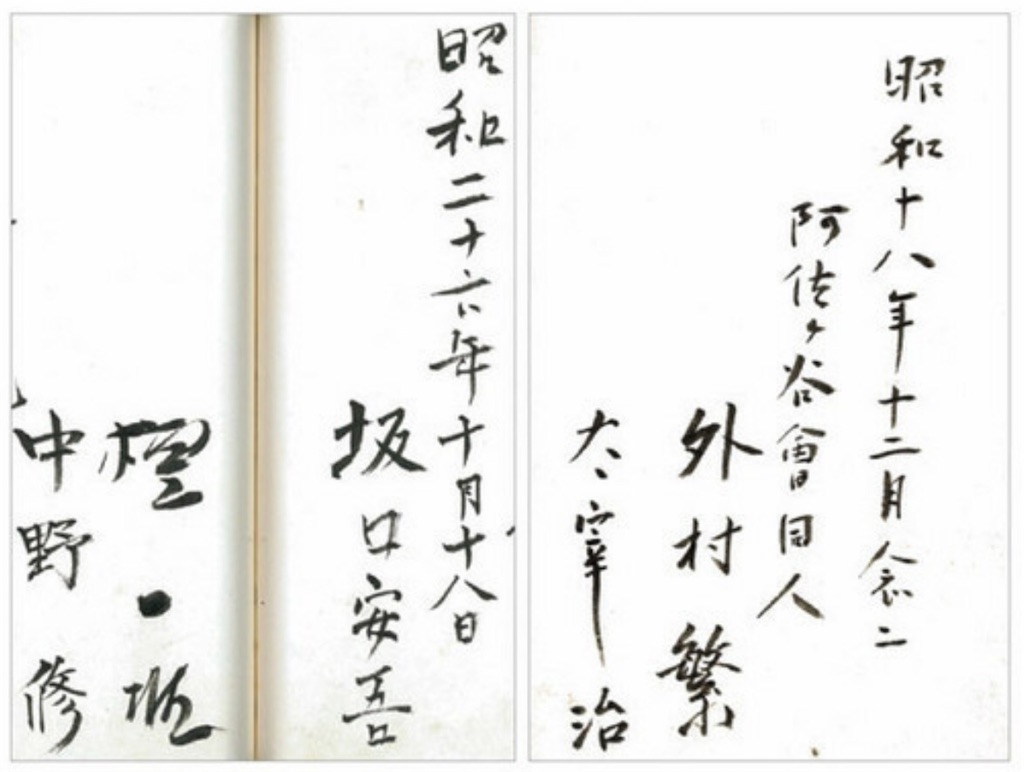 昭和十八年十二月念二
阿佐ヶ谷會同人
外村繁
太宰治
昭和二十六年十月十八日
坂口安吾
檀一雄
中野修